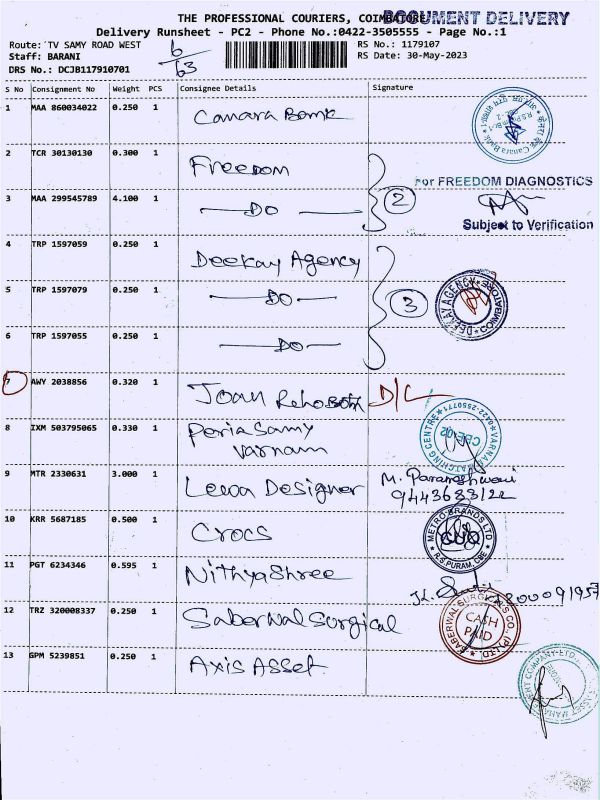 THE PROFESSIONAL COURIERS, COIMBATORE
DOCUMENT DELIVERY
Delivery Runsheet - PC2 - Phone No.:0422-3505555 - Page No.:1
Route: TV SAMY ROAD WEST
6/63
RS No.: 1179107
Staff: BARANI
RS Date: 30-May-2023
DRS No.: DCJB117910701
S No Consignment No Weight PCS Consignee Details Signature
1 MAA 860034022 0.250 1 Canara Bank
2 TCR 30130130 0.300 1 Freedom
For FREEDOM DIAGNOSTICS
3 MAA 299545789 4.100 1 DO 2
Subject to Verification
4 TRP 1597059 0.250 1 Deekay Agency
5 TRP 1597079 0.250 1 DO 3
DEEKAY AGENCY COIMBATORE
6 TRP 1597055 0.250 1 DO
7 AWY 2038856 0.320 1 Joan Rehoboth D/L
8 IXM 503795065 0.330 1 Peria Samy
Varnam
VARNAM MATCHING CENTRE 0422-2550771 CBE-02
9 MTR 2330631 3.000 1 Leena Designer M. Parameshwari
9443683122
10 KRR 5687185 0.500 1 Crocs
METRO BRANDS LTD R.S PURAM, CBE
11 PGT 6234346 0.595 1 Nithya Shree
12 TRZ 320008337 0.250 1 Saberwal Surgical
SABERWAL SURGICAL CO., (P) LTD. CASH PAID
13 GPM 5239851 0.250 1 Axis Asset